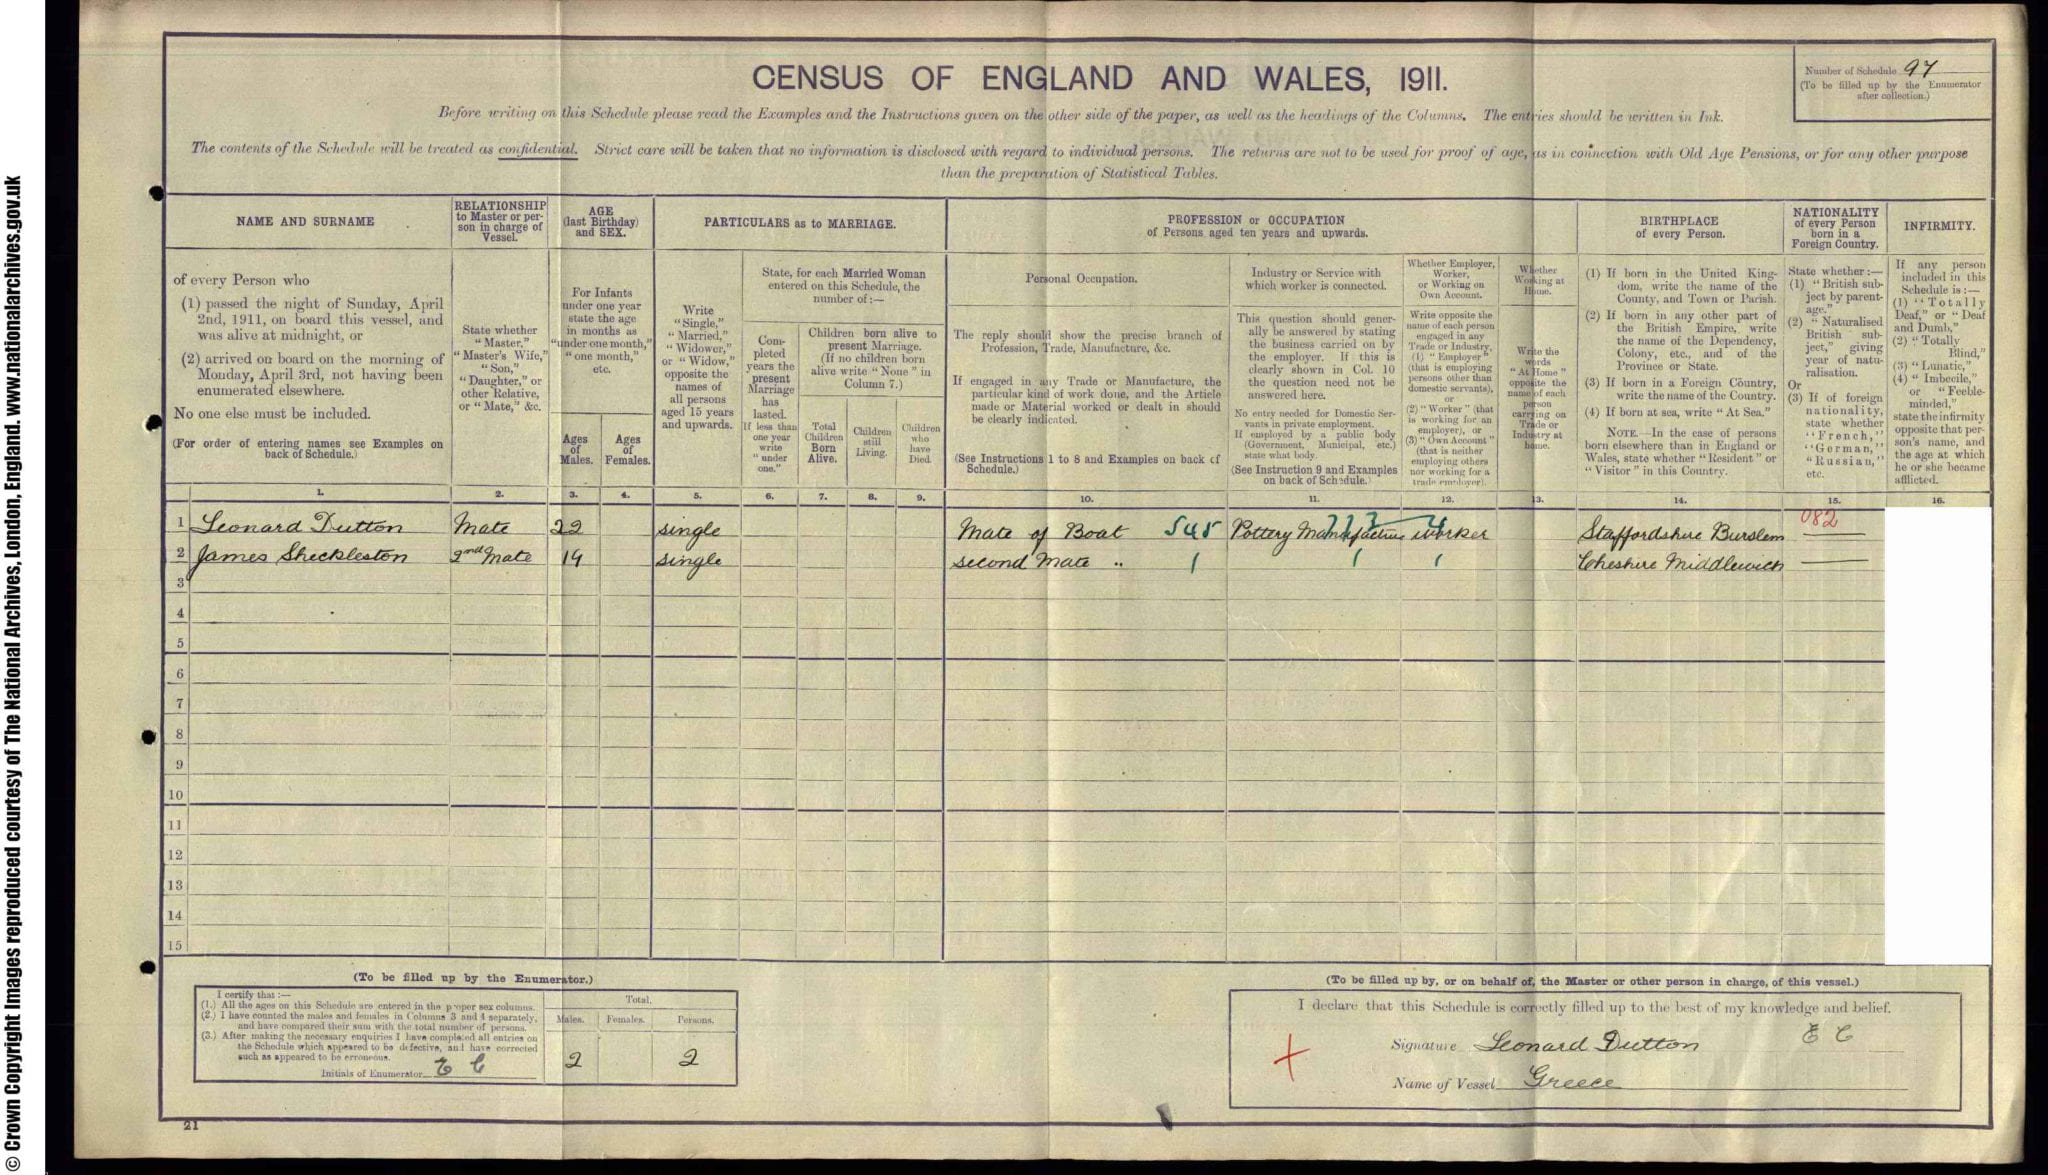 © Crown Copyright Images reproduced courtesy of The National Archives, London, England. www.nationalarchives.gov.uk
CENSUS OF ENGLAND AND WALES, 1911.
Number of Schedule 97
(To be filled up by the Enumerator
after collection.)
Before writing on this Schedule please read the Examples and the Instructions given on the other side of the paper, as well as the headings of the Columns. The entries should be written in Ink.
The contents of the Schedule will be treated as confidential. Strict care will be taken that no information is disclosed with regard to individual persons. The returns are not to be used for proof of age, as in connection with Old Age Pensions, or for any other purpose
than the preparation of Statistical Tables.
NAME AND SURNAME
of every Person who
(1) passed the night of Sunday, April
2nd, 1911, on board this vessel, and
was alive at midnight, or
(2) arrived on board on the morning of
Monday, April 3rd, not having been
enumerated elsewhere.
No one else must be included.
(For order of entering names see Examples on
back of Schedule.)
RELATIONSHIP
to Master or per-
son in charge of
Vessel.
State whether
"Master,"
"Master's Wife,"
"Son,"
"Daughter," or
other Relative,
or "Mate," &c.
AGE
(last Birthday)
and SEX.
For Infants
under one year
state the age
in months as
"under one month,"
"one month,"
etc.
Ages
of
Males.
Ages
of
Females.
PARTICULARS as to MARRIAGE.
Write
"Single,"
"Married,"
"Widower,"
or "Widow,"
opposite the
names of
all persons
aged 15 years
and upwards.
State, for each Married Woman
entered on this Schedule, the
number of:—
Com-
pleted
years the
present
Marriage
has
lasted.
If less than
one year
write
"under
one."
Children born alive to
present Marriage.
(If no children born
alive write "None" in
Column 7.)
Total
Children
Born
Alive.
Children
still
Living.
Children
who
have
Died.
PROFESSION or OCCUPATION
of Persons aged ten years and upwards.
Personal Occupation.
The reply should show the precise branch of
Profession, Trade, Manufacture, &c.
If engaged in any Trade or Manufacture, the
particular kind of work done, and the Article
made or Material worked or dealt in should
be clearly indicated.
(See Instructions 1 to 8 and Examples on back of
Schedule.)
Industry or Service with
which worker is connected.
This question should gener-
ally be answered by stating
the business carried on by
the employer. If this is
clearly shown in Col. 10
the question need not be
answered here.
No entry needed for Domestic Ser-
vants in private employment.
If employed by a public body
(Government, Municipal, etc.)
state what body.
(See Instruction 9 and Examples
on back of Schedule.)
Whether Employer,
Worker,
or Working on
Own Account.
Write opposite the
name of each person
engaged in any
Trade or Industry,
(1) "Employer"
(that is employing
persons other than
domestic servants),
or
(2) "Worker" (that
is working for an
employer), or
(3) "Own Account"
(that is neither
employing others
nor working for a
trade employer).
Whether
Working at
Home.
Write the
words
"At Home"
opposite the
name of each
person
carrying on
Trade or
Industry at
home.
BIRTHPLACE
of every Person.
(1) If born in the United King-
dom, write the name of the
County, and Town or Parish.
(2) If born in any other part of
the British Empire, write
the name of the Dependency,
Colony, etc., and of the
Province or State.
(3) If born in a Foreign Country,
write the name of the Country.
(4) If born at sea, write "At Sea."
NOTE.—In the case of persons
born elsewhere than in England or
Wales, state whether "Resident" or
"Visitor" in this Country.
NATIONALITY
of every Person
born in a
Foreign Country.
State whether:—
(1) "British sub-
ject by parent-
age."
(2) "Naturalised
British sub-
ject," giving
year of natu-
ralisation.
Or
(3) If of foreign
nationality,
state whether
"French,"
"German,"
"Russian,"
etc.
INFIRMITY.
If any person
included in this
Schedule is:—
(1) "Totally
Deaf," or "Deaf
and Dumb,"
(2) "Totally
Blind,"
(3) "Lunatic,"
(4) "Imbecile,"
or "Feeble-
minded,"
state the infirmity
opposite that per-
son's name, and
the age at which
he or she became
afflicted.
1. 2. 3. 4. 5. 6. 7. 8. 9. 10. 11. 12. 13. 14. 15. 16.
1 Leonard Dutton Mate 22 single Mate of Boat 545 Pottery Manufacture worker Staffordshire Burslem 082
2 James Sheckleston 2nd Mate 19 single second Mate " Cheshire Middlewich
3
4
5
6
7
8
9
10
11
12
13
14
15
(To be filled up by the Enumerator.)
I certify that:—
(1.) All the ages on this Schedule are entered in the proper sex columns.
(2.) I have counted the males and females in Columns 3 and 4 separately,
and have compared their sum with the total number of persons.
(3.) After making the necessary enquiries I have completed all entries on
the Schedule which appeared to be defective, and have corrected
such as appeared to be erroneous.
Initials of Enumerator E C
Total.
Males. Females. Persons.
2 2
(To be filled up by, or on behalf of, the Master or other person in charge, of this vessel.)
I declare that this Schedule is correctly filled up to the best of my knowledge and belief.
Signature Leonard Dutton E C
Name of Vessel Greece
21